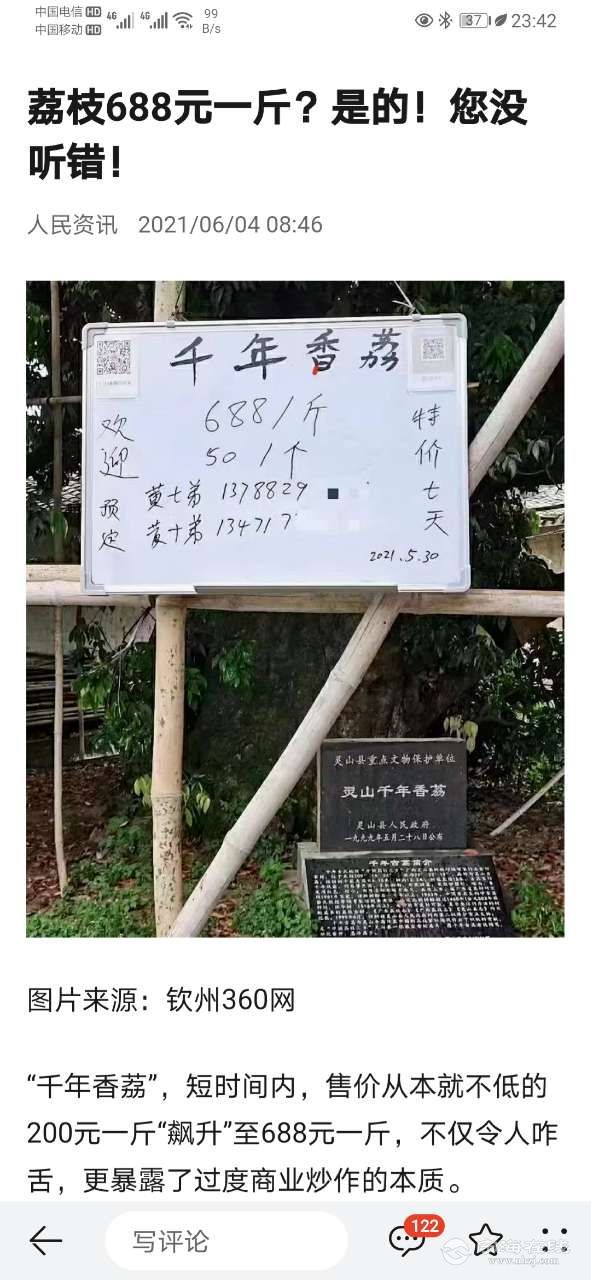 中国电信 HD 4G 4G 99 B/s
中国移动 HD
37 23:42
荔枝688元一斤？是的！您没
听错！
人民资讯 2021/06/04 08:46
千年香荔
欢迎预定
688/斤
50/个
黄七弟 1378829
黄十弟 134717
特价七天
2021.5.30
灵山县重点文物保护单位
灵山千年香荔
灵山县人民政府
一九九九年五月二十八日公布
千年古荔简介
图片来源：钦州360网
“千年香荔”，短时间内，售价从本就不低的
200元一斤“飙升”至688元一斤，不仅令人咋
舌，更暴露了过度商业炒作的本质。
写评论
122
www.nhzj.com